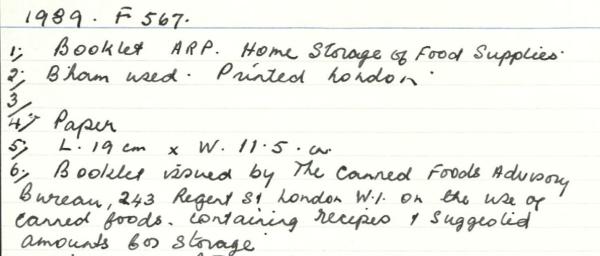 1989. F 567.
1; Booklet ARP. Home Storage of Food Supplies.
2; B'ham used. Printed London.
3/
4; Paper
5; L. 19 cm x W. 11.5. cm.
6; Booklet issued by The Canned Foods Advisory
Bureau, 243 Regent St London W.1. on the use of
canned foods. containing recipes & suggested
amounts for storage